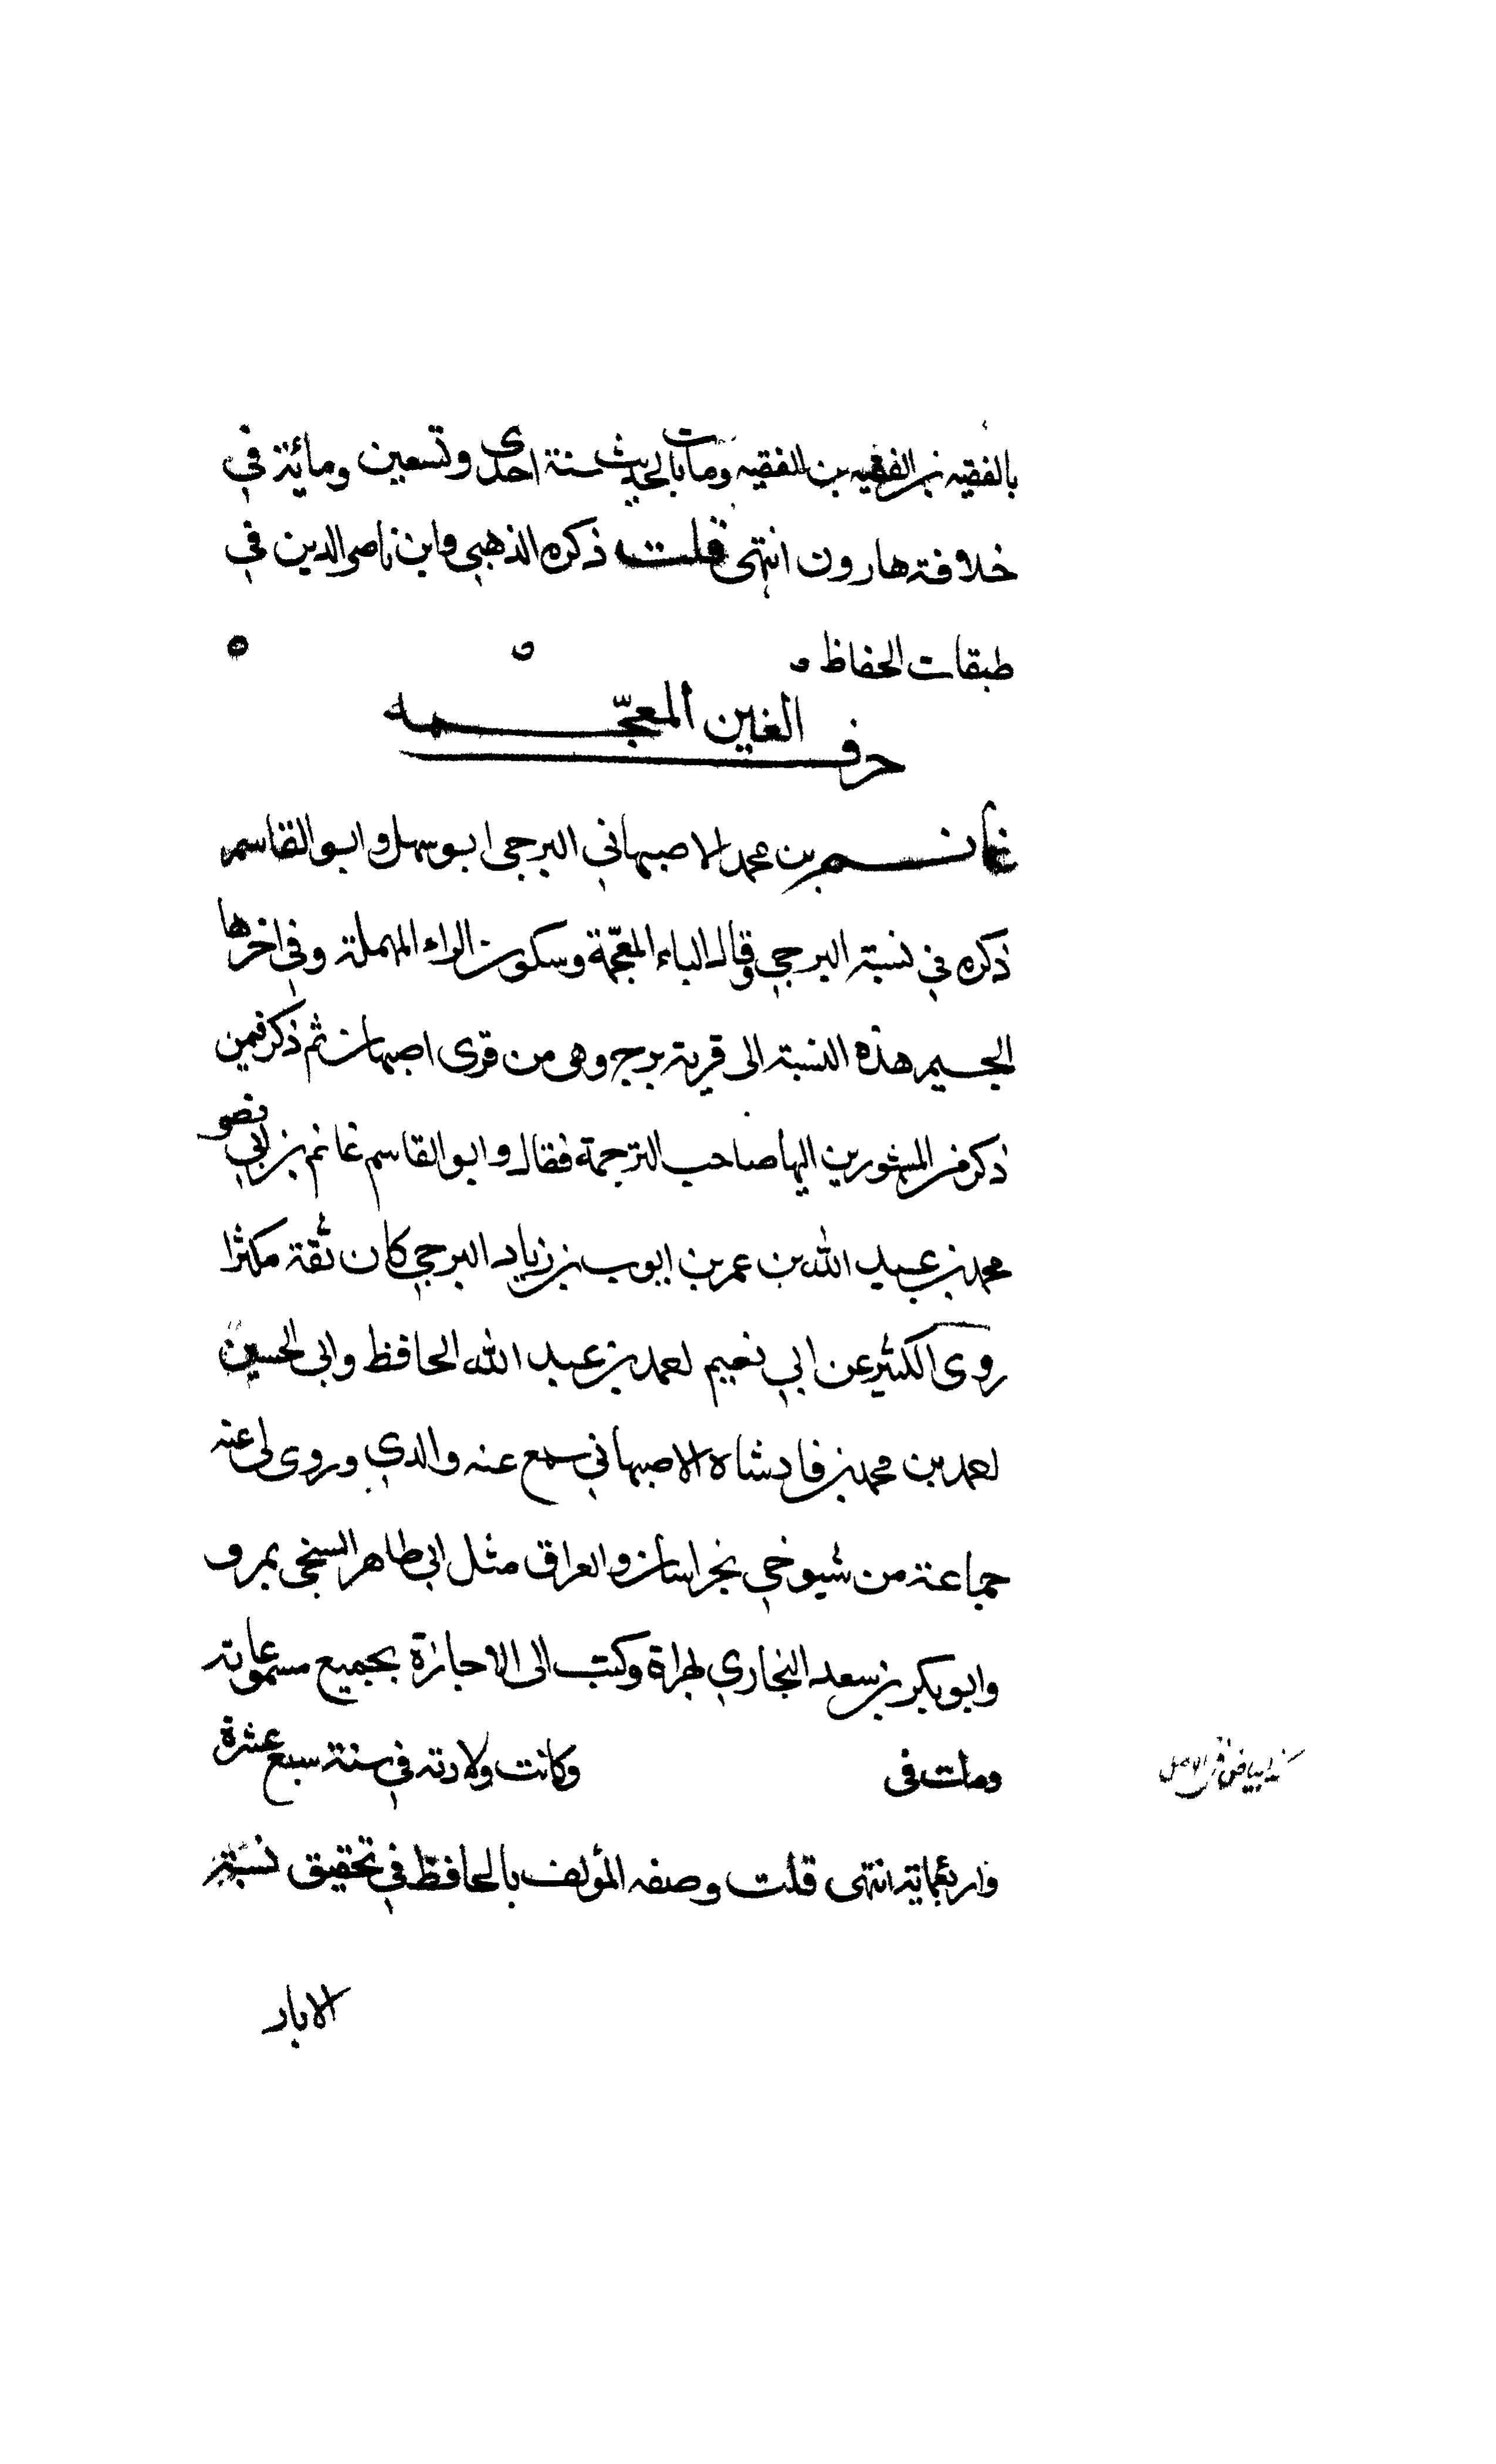 بالفقيه بن الفقيه بن الفقيه ومات بالحديث سنة احدى وتسعين ومائة في
خلافة هارون انتهى قلت ذكره الذهبي وابن ناصر الدين في
طبقات الحفاظ
حرف الغين المعجمه
غانم بن محمد الاصبهاني البرجي ابو سهل وابو القاسم
ذكره في نسبة البرجي وقال الباء المعجمة وسكون الراء المهملة وفي اخرها
الجيم هذه النسبة الى قرية برج وهي من قرى اصبهان ثم ذكر فيمن
ذكر من المشهورين اليها صاحب الترجمة فقال وابو القاسم غانم بن ابي نصر
محمد بن عبيد الله بن عمر بن ايوب بن زياد البرجي كان ثقة مكثرا
روى الكثير عن ابي نعيم احمد بن عبد الله الحافظ وابي الحسين
احمد بن محمد بن فادشاه الاصبهاني سمع عنه والدي وروى لي عنه
جماعة من شيوخي بخراسان والعراق مثل ابي طاهر السنجي بمرو
وابو بكر بن سعد البخاري بهراة وكتب الى الاجازة بجميع مسموعاته
ومات في وكانت ولادته في سنة سبع عشرة
كذا بياض في الاصل
واربعماية انتهى قلت وصفه المؤلف بالحافظ في تحقيق نسبته
الابار